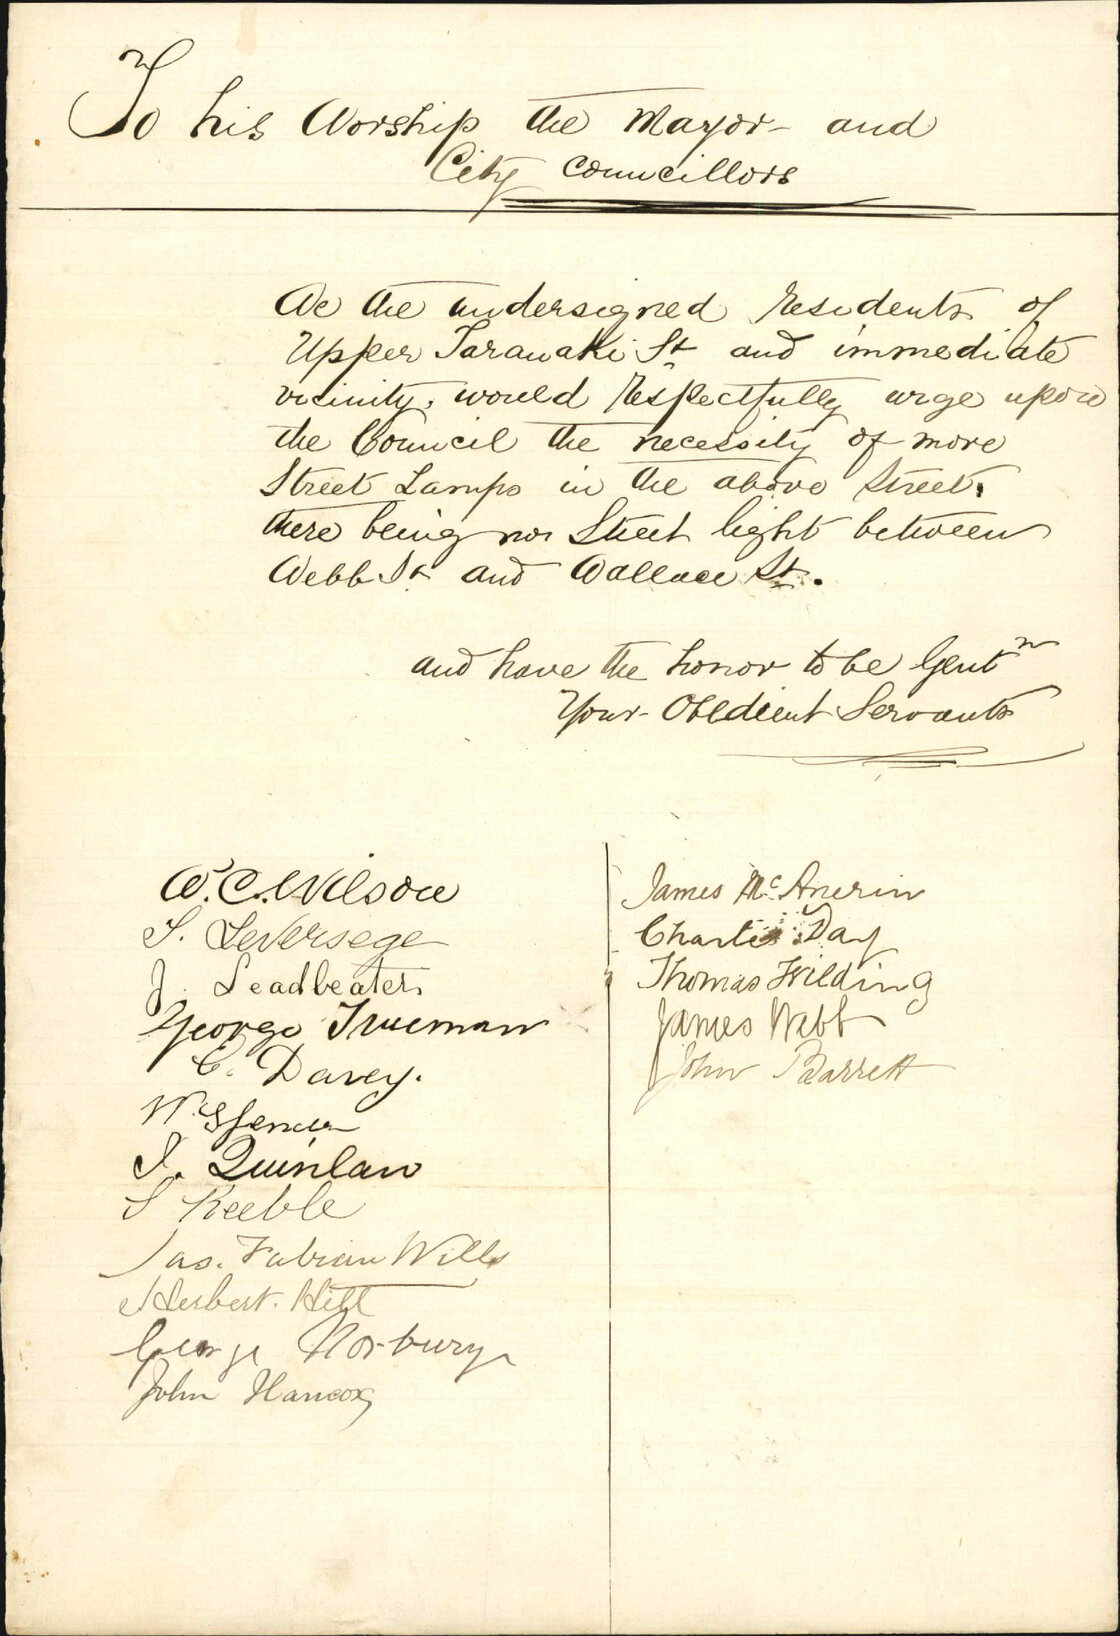 To his Worship the Mayor and
City Councillors
We the undersigned residents of
Upper Taranaki St and immediate
vicinity, would respectfully urge upon
the Council the necessity of more
Street Lamps in the above Street,
there being no Street light between
Webb St and Wallace St.
and have the honor to be Gentn
Your Obedient Servants
W. C. Wilson
S. Leversege
J. Leadbeater
George Trueman
C. Davey.
J. Quinlan
S Keeble
Jas. Fabian Wills
Herbert Hill
George Norbury
John Hancox
James Mc
Charles Day
Thomas Wilding
James Webb
John Barrett